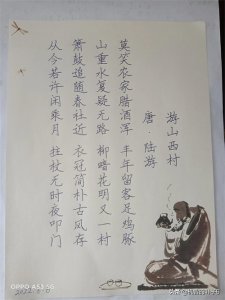 游山西村
唐·陆游
莫笑农家腊酒浑 丰年留客足鸡豚
山重水复疑无路 柳暗花明又一村
箫鼓追随春社近 衣冠简朴古风存
从今若许闲乘月 拄杖无时夜叩门
OPPO A53 5G